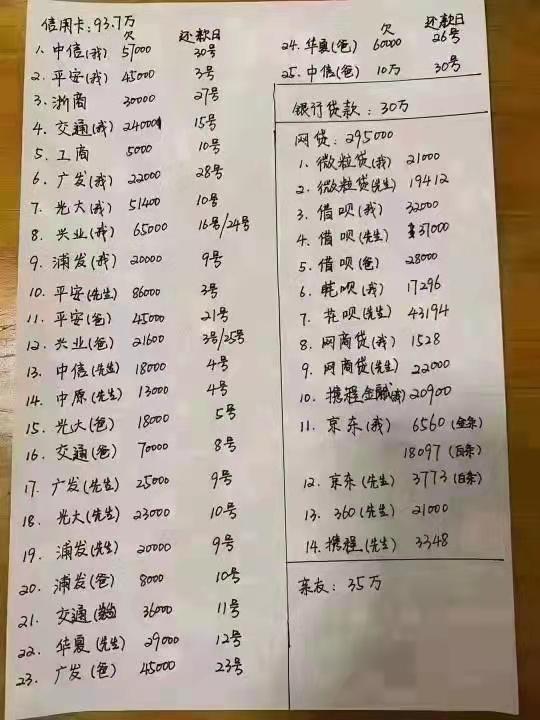 信用卡:93.7万
欠 还款日
1. 中信(我) 57000 30号
2. 平安(我) 45000 3号
3. 浙商 30000 27号
4. 交通(我) 24000 15号
5. 工商 5000 10号
6. 广发(我) 22000 28号
7. 光大(我) 51400 10号
8. 兴业(我) 65000 16号/24号
9. 浦发(我) 20000 9号
10. 平安(先生) 86000 3号
11. 平安(爸) 45000 21号
12. 兴业(爸) 21600 3号/25号
13. 中信(先生) 18000 4号
14. 中原(先生) 13000 4号
15. 光大(爸) 18000 5号
16. 交通(爸) 70000 8号
17. 广发(先生) 25000 9号
18. 光大(先生) 23000 10号
19. 浦发(先生) 20000 9号
20. 浦发(爸) 8000 10号
21. 交通 36000 11号
22. 华夏(先生) 29000 12号
23. 广发(爸) 45000 23号
欠 还款日
24. 华夏(爸) 60000 26号
25. 中信(爸) 10万 30号
银行贷款:30万
网贷:295000
1. 微粒贷(我) 21000
2. 微粒贷(先生) 19412
3. 借呗(我) 32000
4. 借呗(先生) 37000
5. 借呗(爸) 28000
6. 花呗(我) 17296
7. 花呗(先生) 43194
8. 网商贷(我) 1528
9. 网商贷(先生) 22000
10. 携程金融(我) 20900
11. 京东(我) 6560(金条)
18097(白条)
12. 京东(先生) 3773(白条)
13. 360(先生) 21000
14. 携程(先生) 3348
亲友:35万